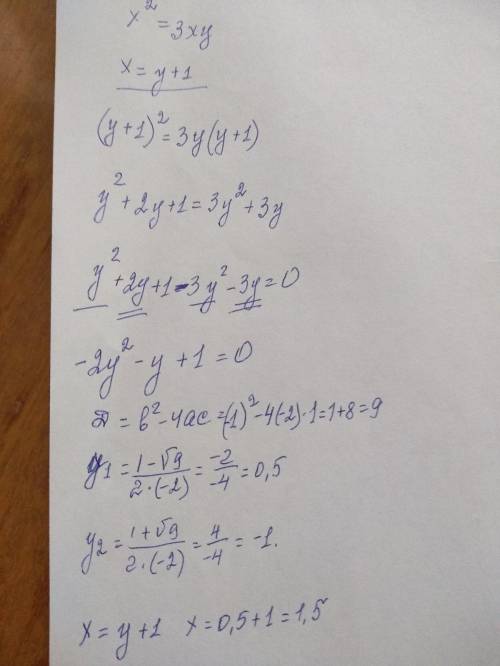 x² = 3xy
x = y+1
(y+1)² = 3y(y+1)
y² + 2y+1 = 3y² + 3y
y² + 2y+1 - 3y² - 3y = 0
-2y² - y + 1 = 0
D = b² - 4ac = (-1)² - 4(-2)·1 = 1+8 = 9
y₁ = (1-√9)/(2·(-2)) = -2/-4 = 0,5
y₂ = (1+√9)/(2·(-2)) = 4/-4 = -1.
x = y+1 x = 0,5+1 = 1,5